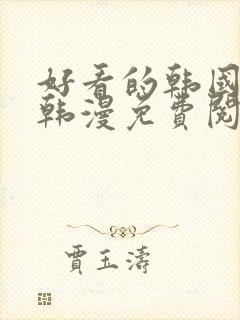 好看的韩国
韩漫免费阅
賈玉濤